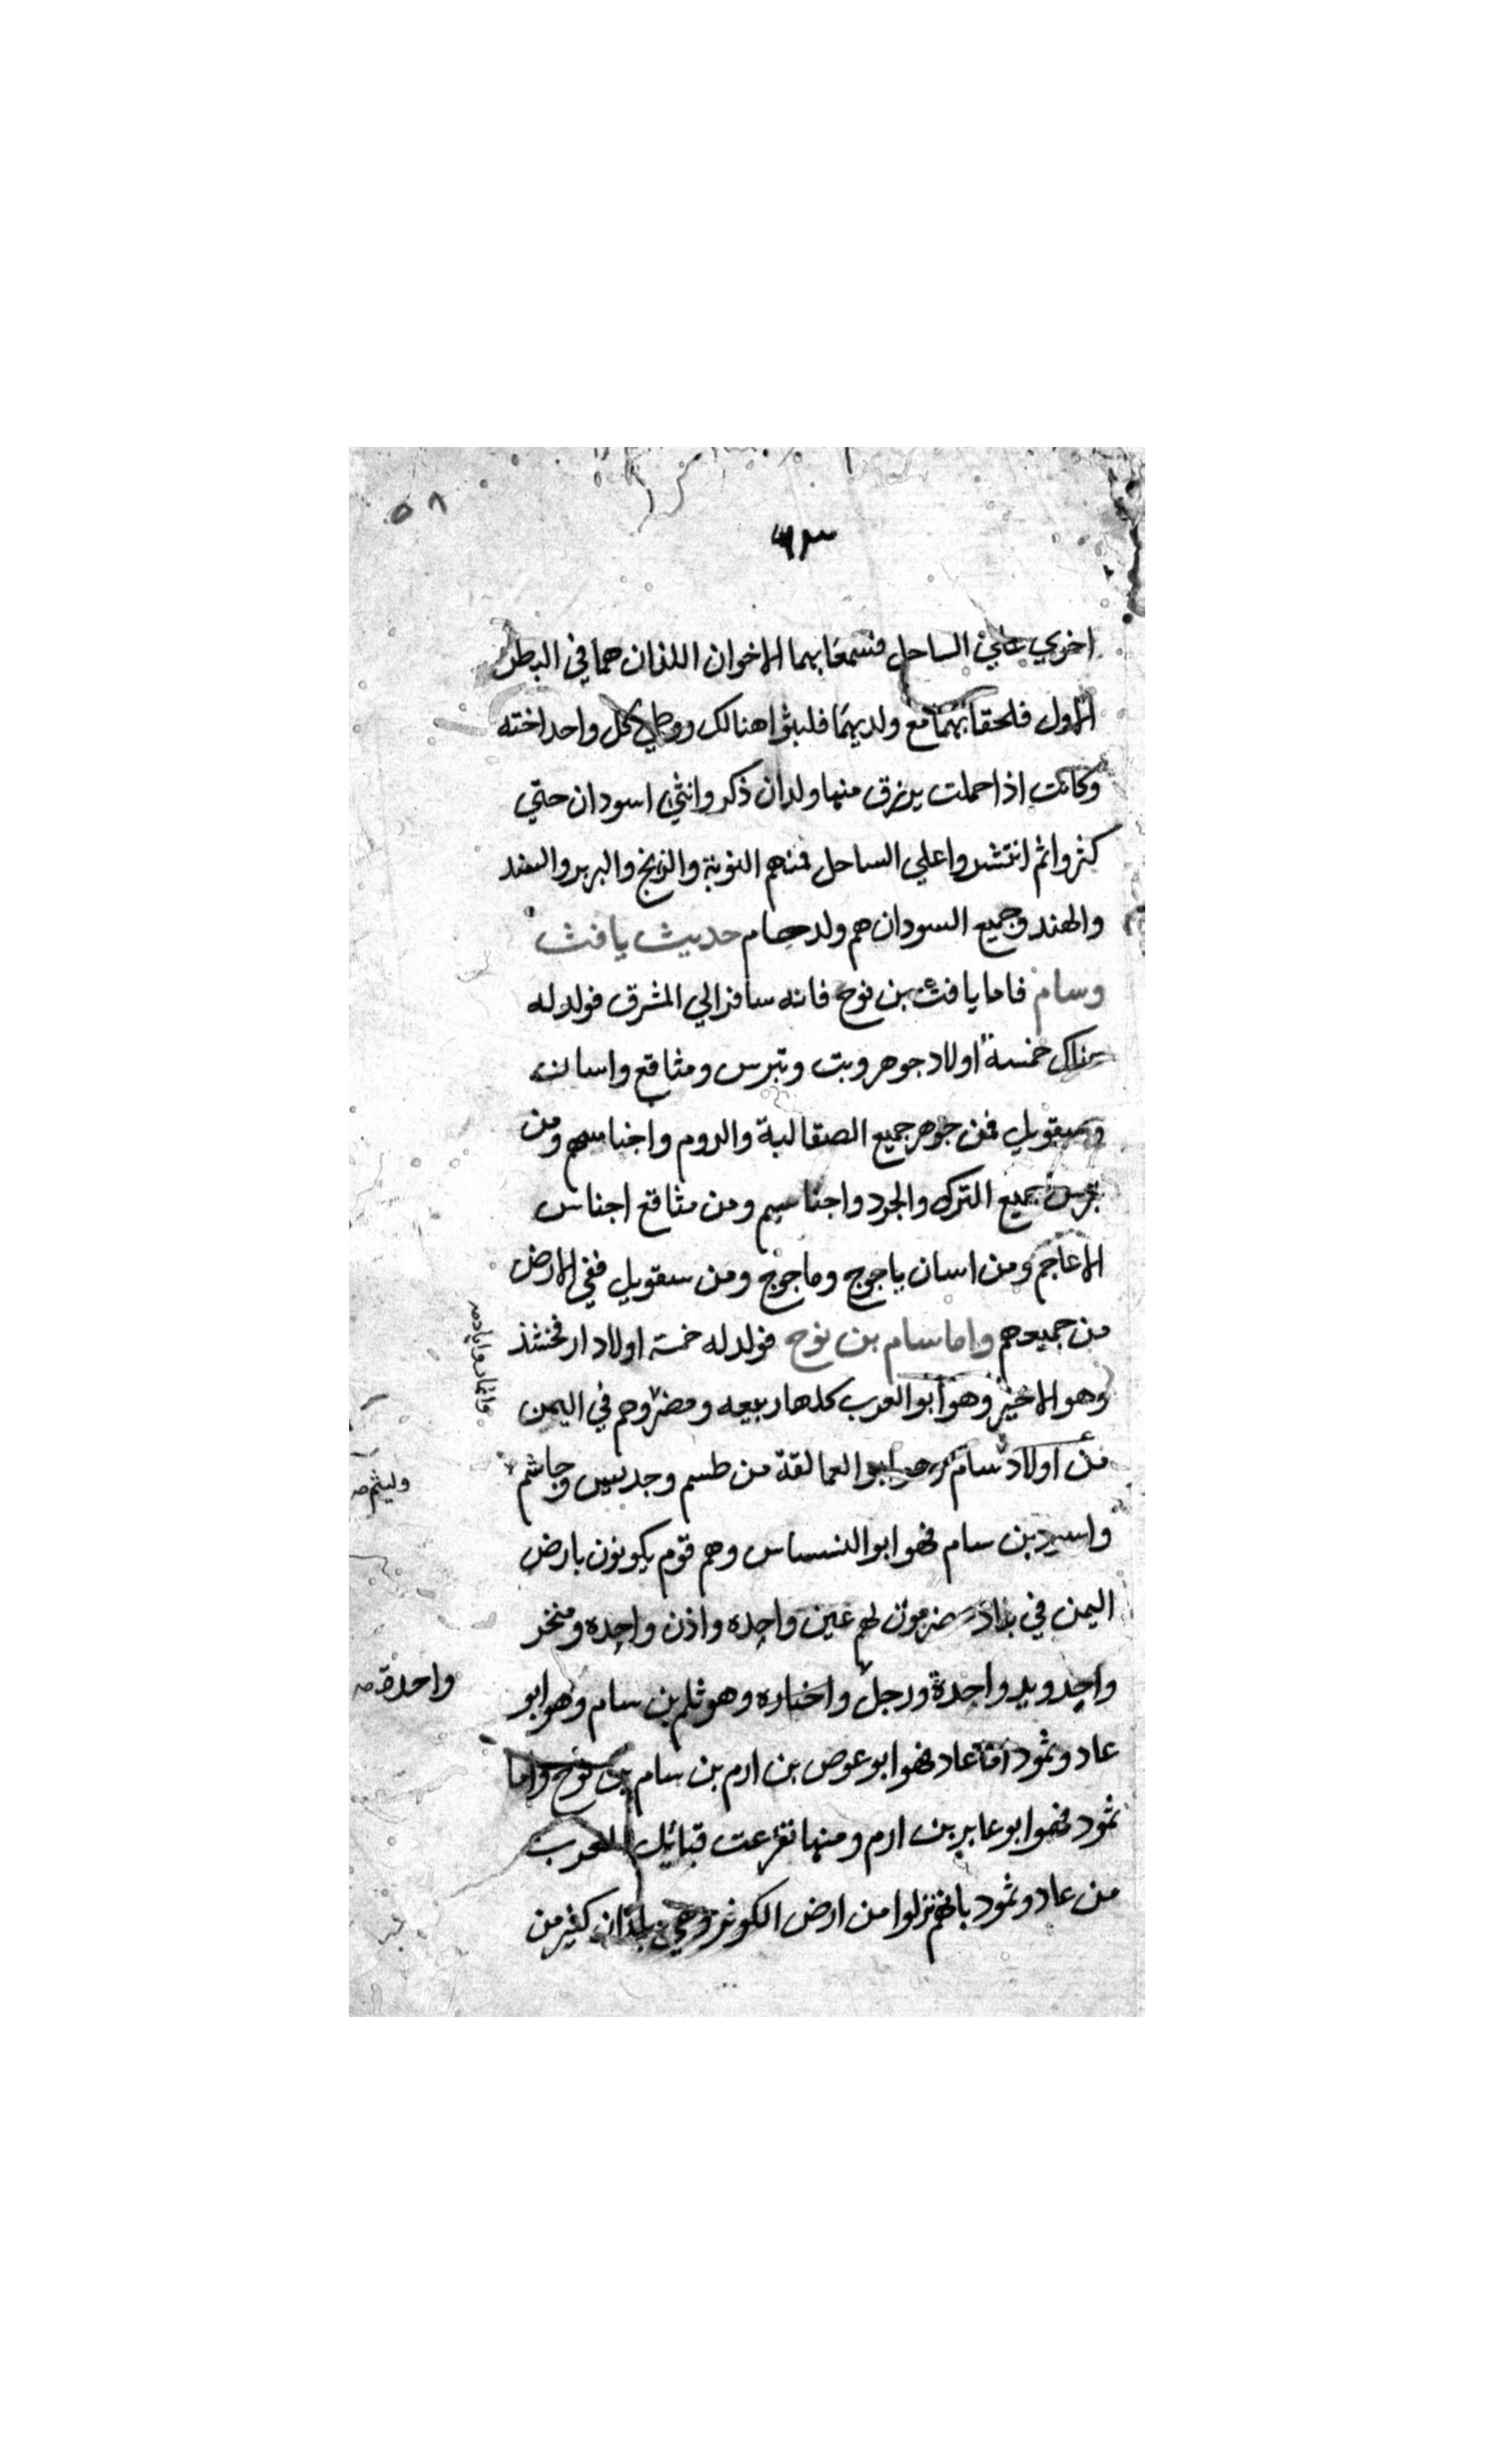 ٥٨
اخري علي الساحل فسمعا بهما الاخوان اللذان هما في البطن
الاول فلحقا بهما مع ولديهما فلبثوا هنالك ووطي كل واحد اخته
وكانت اذا حملت يرزق منها ولدان ذكر وانثي اسودان حتي
كثروا ثم انتشروا علي الساحل فمنهم النوبة والزنج والبربر والسند
والهند وجميع السودان هم ولد حام حديث يافث
وسام فاما يافث بن نوح فانه سافر الي المشرق فولد له
هناك خمسة اولاد جوهر وبت وتبرس ومثاقع واسان
وسقويل فمن جوهر جميع الصقالبة والروم واجناسهم ومن
تبرس جميع الترك والجرد واجناسهم ومن مثاقع اجناس
الاعاجم ومن اسان ياجوج وماجوج ومن سقويل ففي الارض
من جميعهم واما سام بن نوح فولد له خمسة اولاد ارفخشذ
وهو الاخير وهو ابو العرب كلها ربيعه ومضر وهم في اليمن
وانمار واياد صه
من اولاد سام وهو ابو العمالقة من طسم وجديس وجاشم
وليثم صه
واسيد بن سام فهو ابو النسناس وهم قوم يكونون بارض
اليمن في بلاد حضرموت لهم عين واحده واذن واحده ومنخر
واحد ويد واحدة ورجل وهو بن سام وهو ابو
واحدة صه
عاد وثمود اما عاد فهو ابو عوص بن ارم بن سام بن نوح واما
ثمود فهو ابو عابر بن ارم ومنها تفرعت قبائل العرب
من عاد وثمود بانهم نزلوا من ارض وهي بلدان كثير من